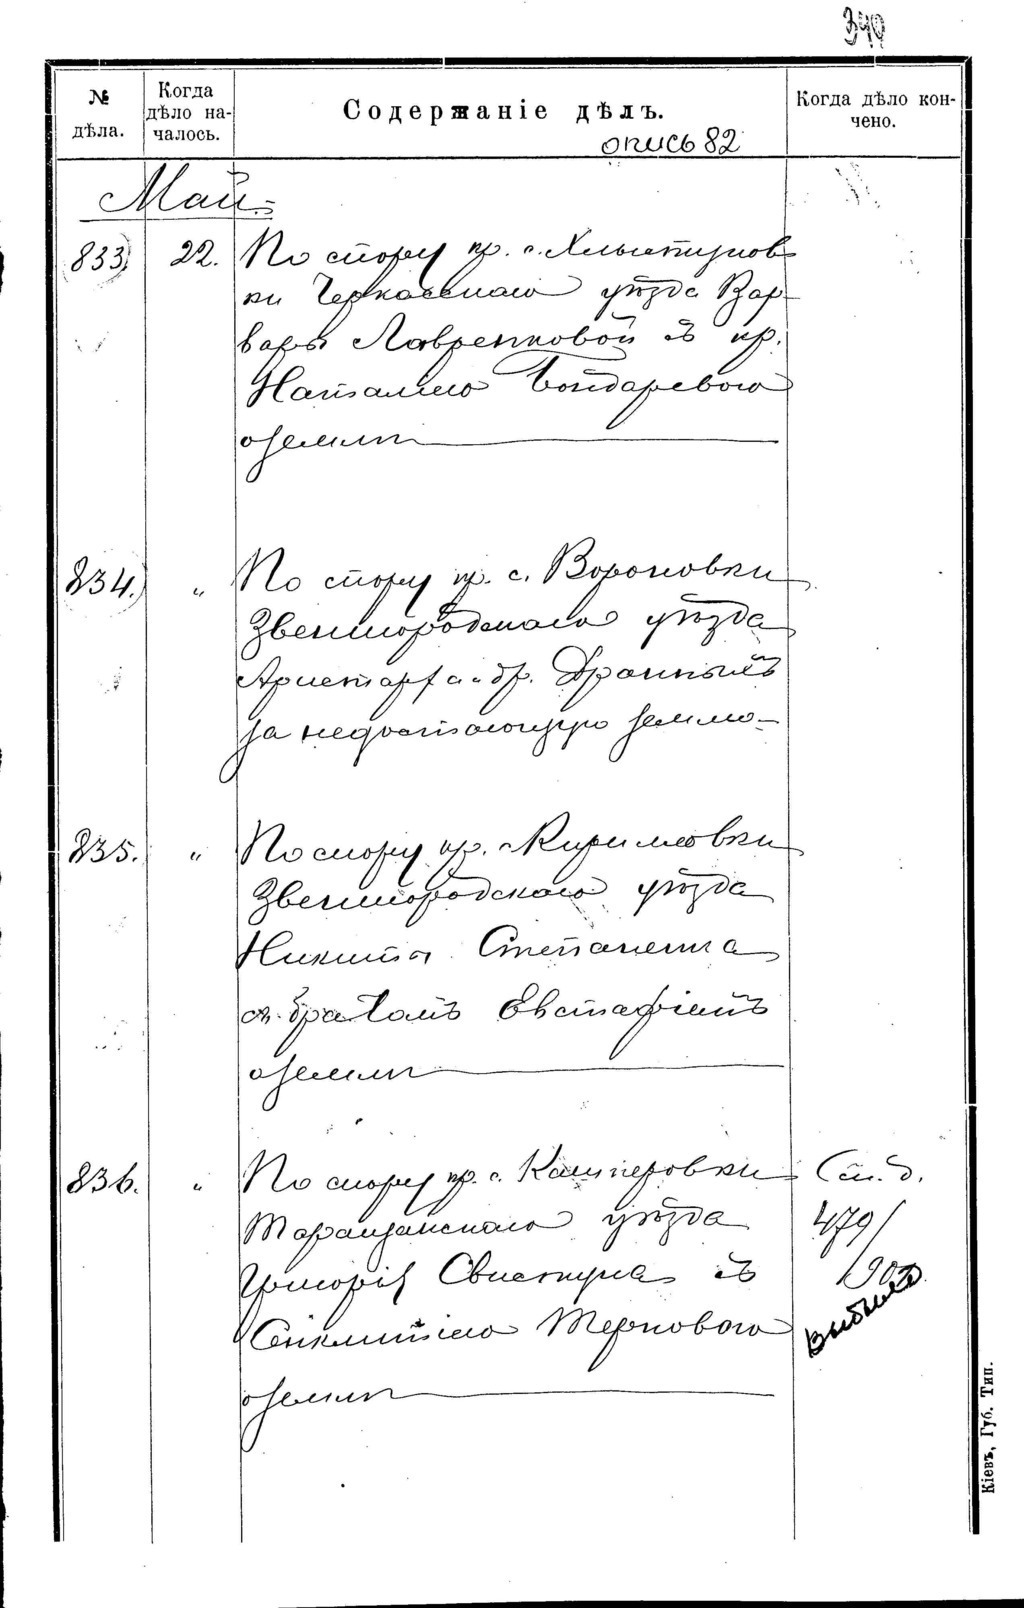 340
№ дѣла.
Когда дѣло началось.
Содержаніе дѣлъ.
Когда дѣло кончено.
опись 82
Май
833) 22. По спору кр. с. Хлыстуновки
Черкасскаго уѣзда Варвары
Лавренковой съ кр.
Наталіею Бондаревою
о землѣ
834.) " По спору кр. с. Вороновки
Звенигородскаго уѣзда
Аристарха и др. Дранныхъ
за недостающую землю
835. " По спору кр. с. Кириловки
Звенигородскаго уѣзда
Никиты Степаненка
съ братомъ Евстафіемъ
о землѣ
836. " По спору кр. с. Кашперовки
Таращанскаго уѣзда
Григорія Свистуна съ
Синклитіею Терновою
о землѣ
Ст. д.
479/
902
выбыло
Кіевъ, Губ. Тип.